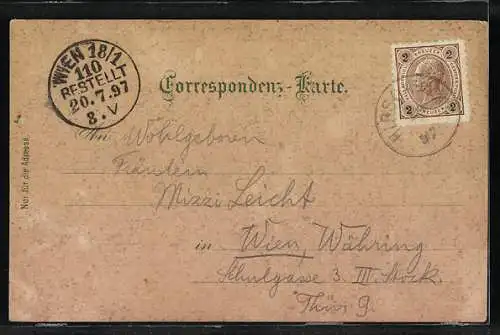 WIEN 18/1.
110
BESTELLT
20.7.97
8.V
Correspondenz-Karte.
2 2
KREUZER
2 2
97
Nur für die Adresse.
An Wohlgeboren
Fräulein
Mizzi Leicht
in Wien, Währing
Schulgasse 3 III. Stock.
Thür 9.